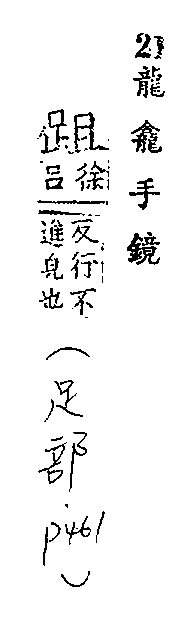 21龍龕手鏡
跙
徐
呂
反行不
進皃也
(足部.p461)